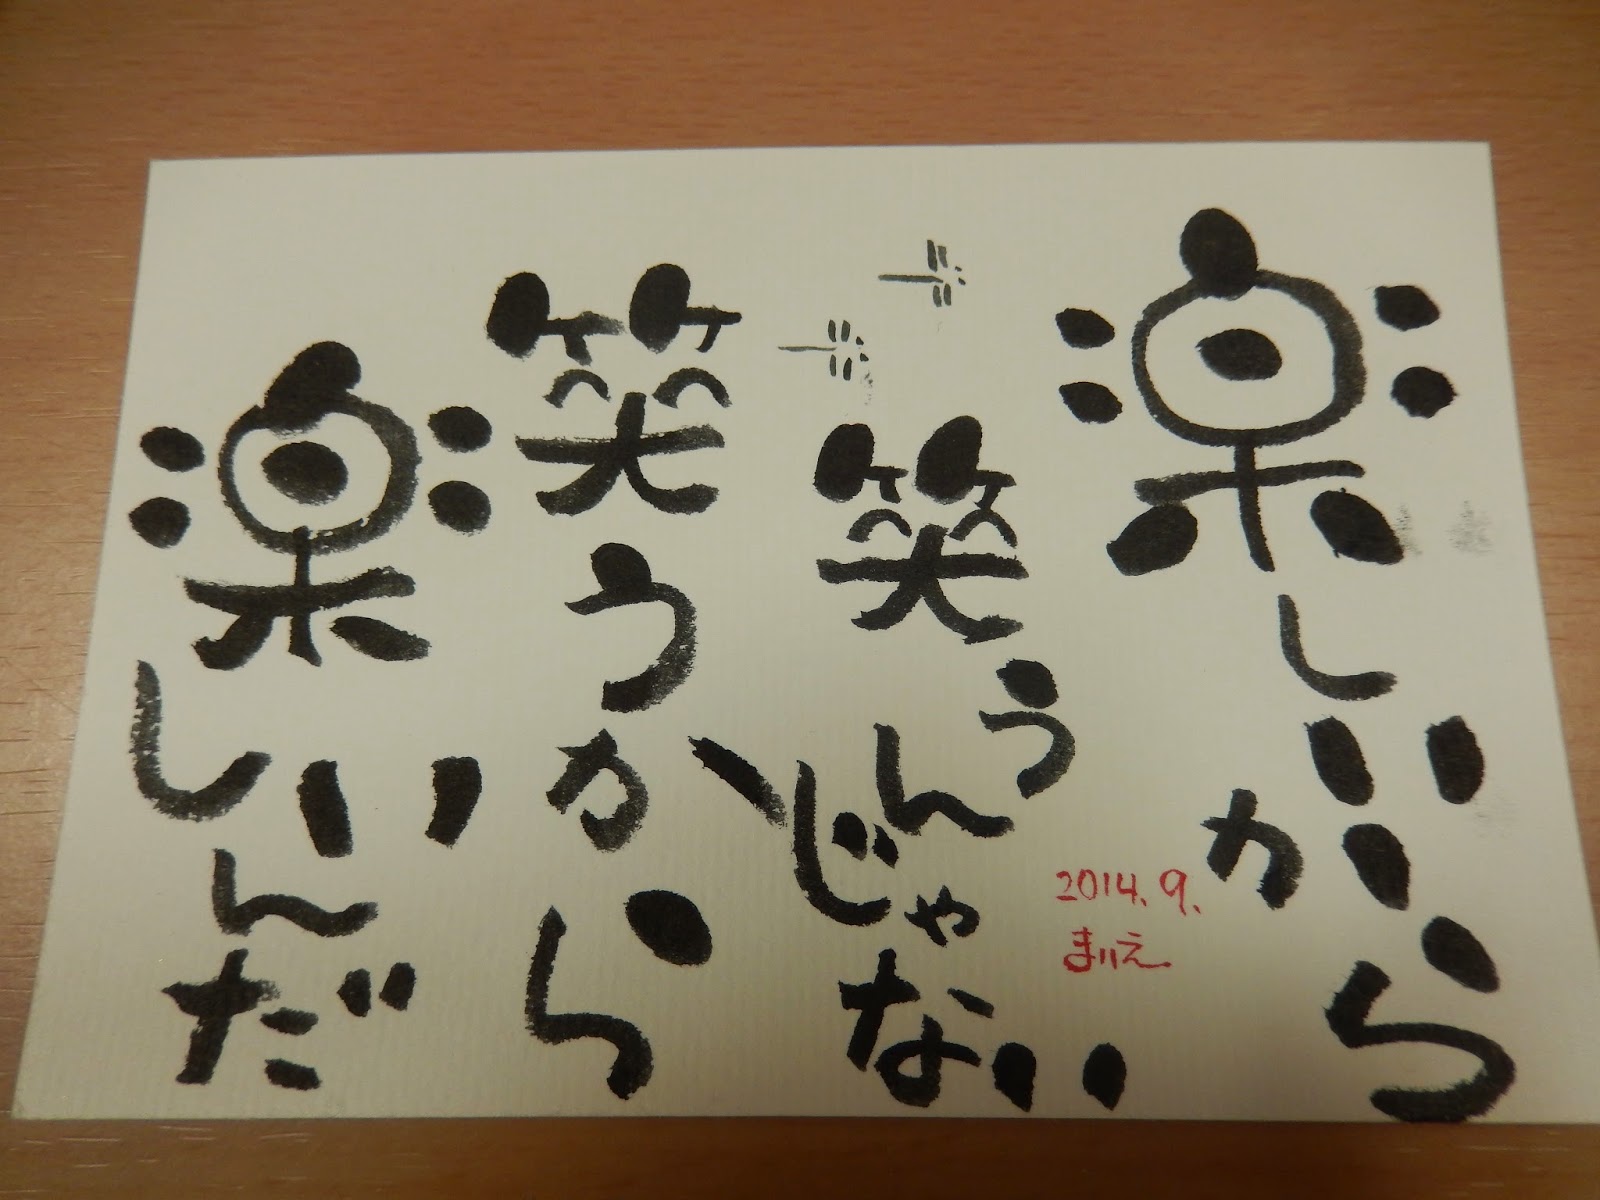 楽しいから
笑うんじゃない
笑うから
楽しいんだ
2014.9.
まりえ